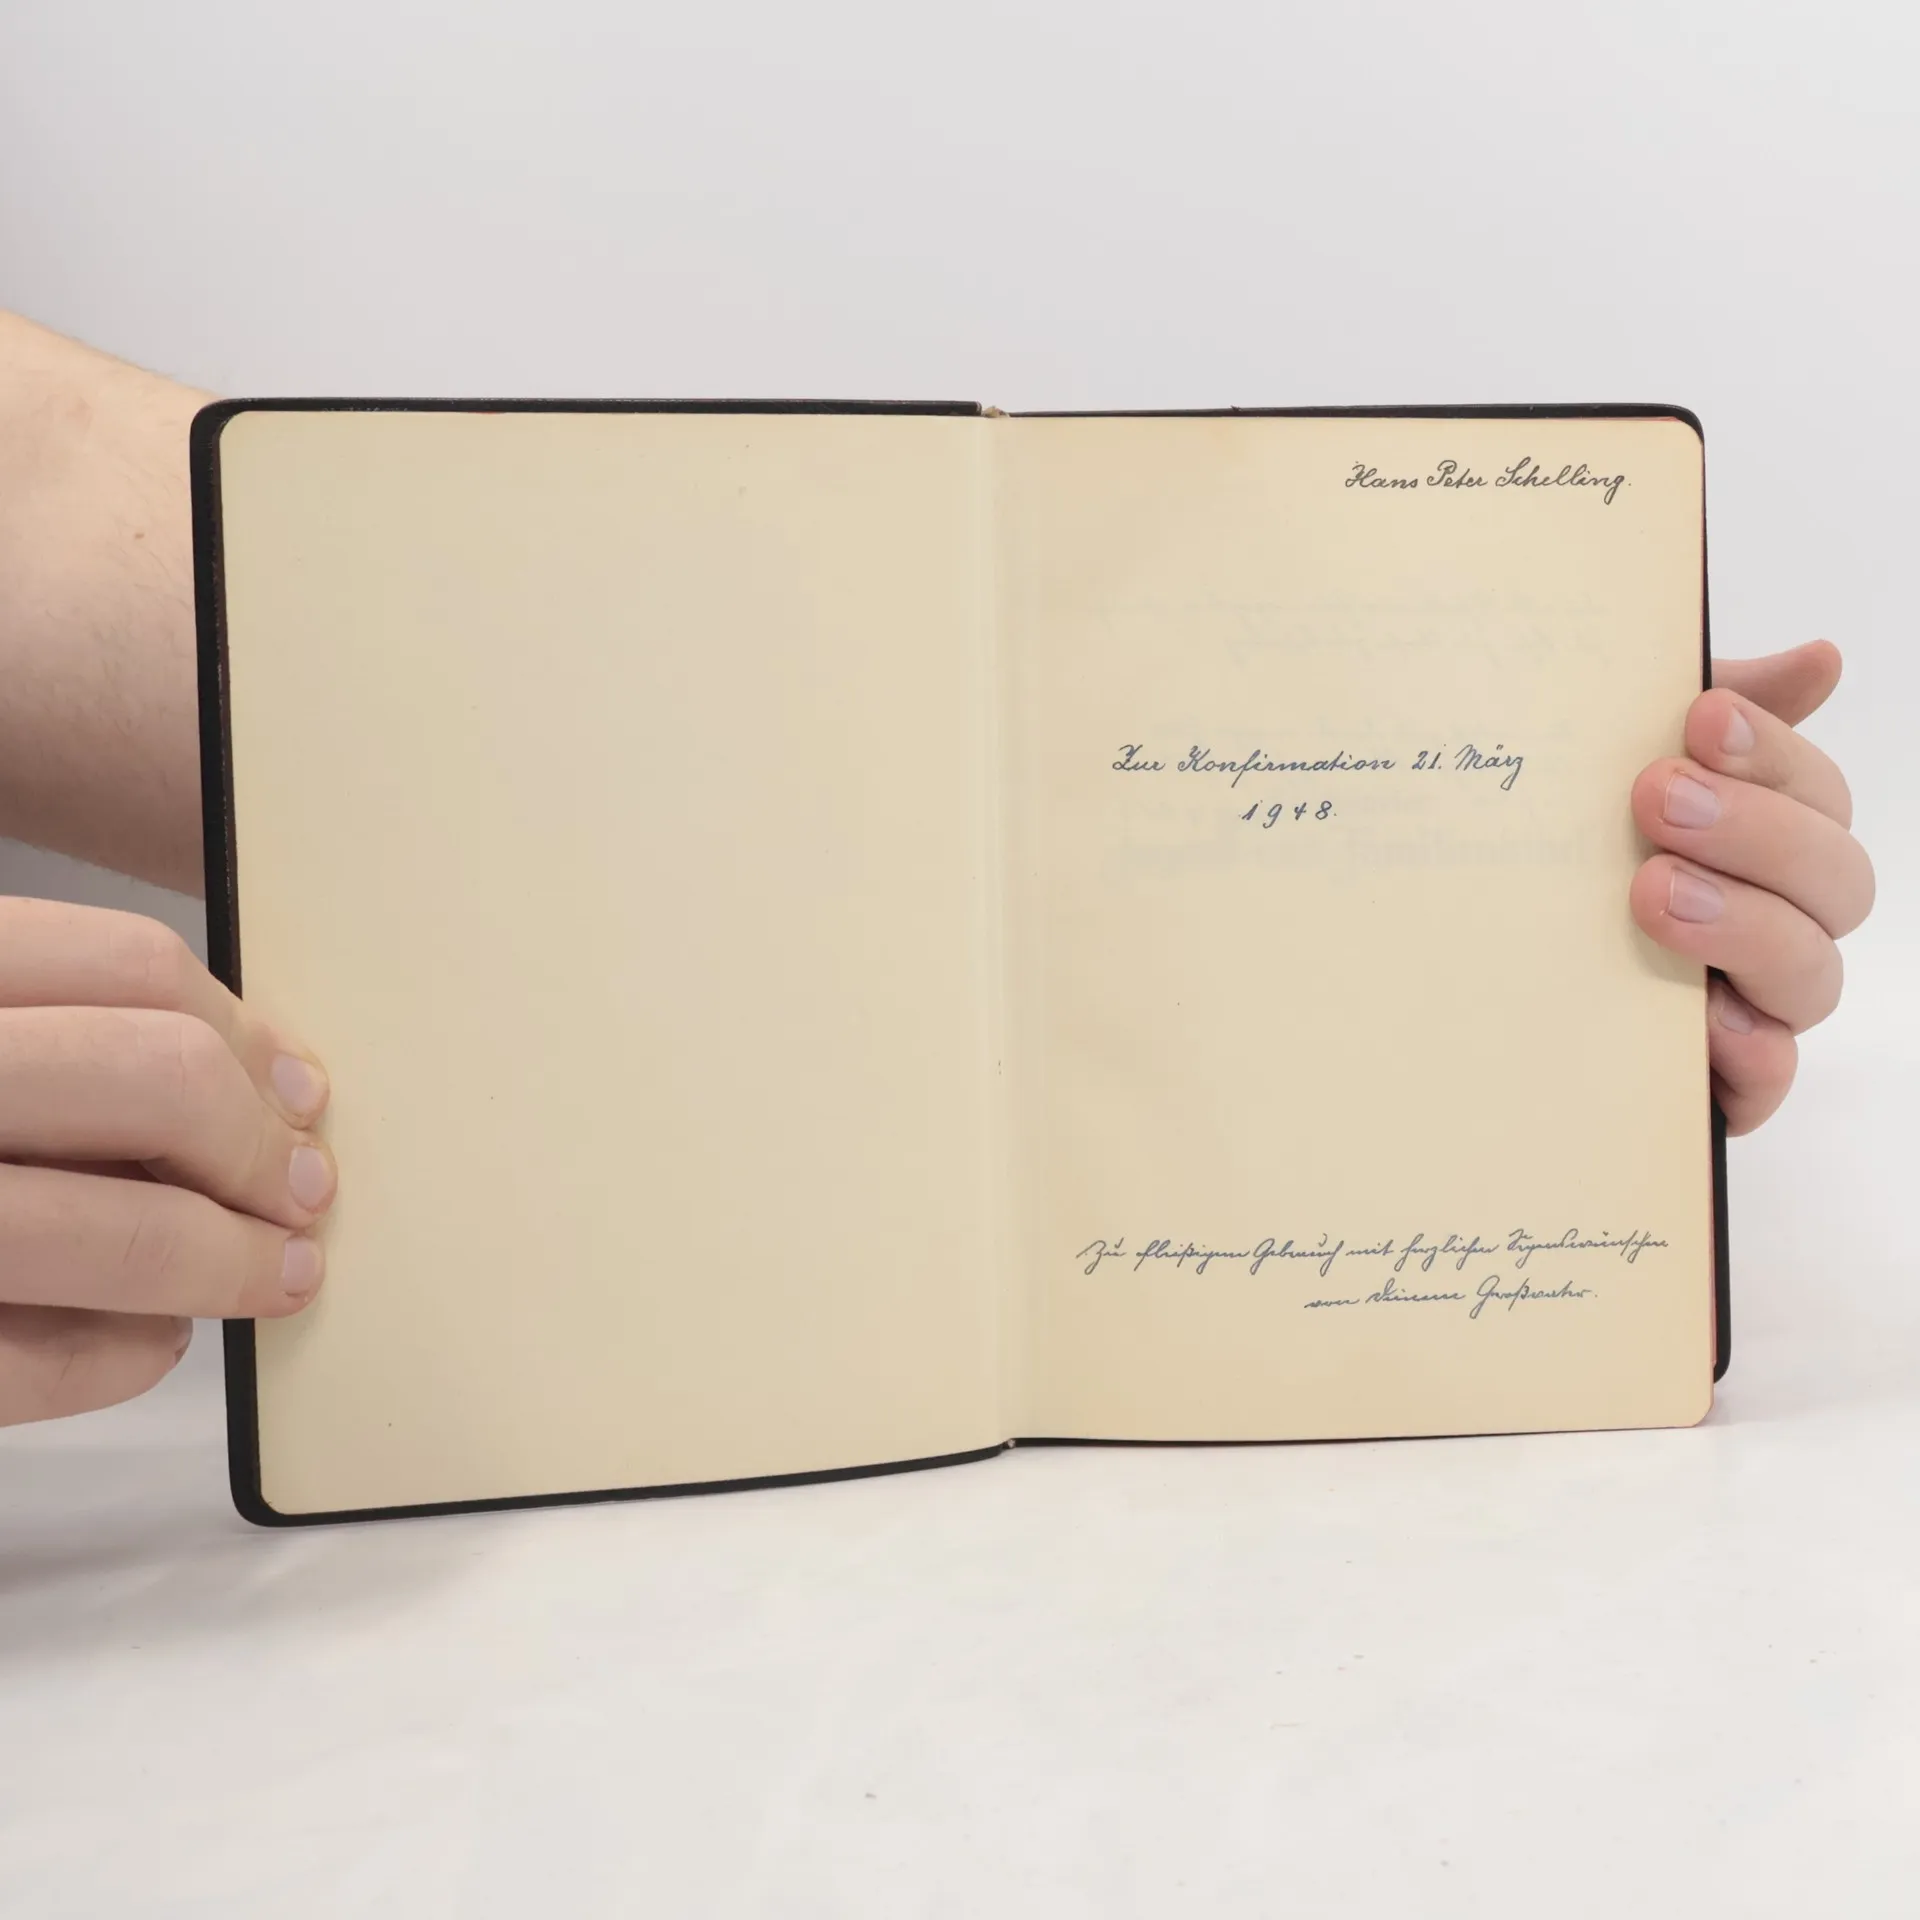 Hans Peter Schelling.
Zur Konfirmation 21. März
1948.
Zu fleißigem Gebrauch mit herzlichen Segenswünschen
von Deinem Großvater.